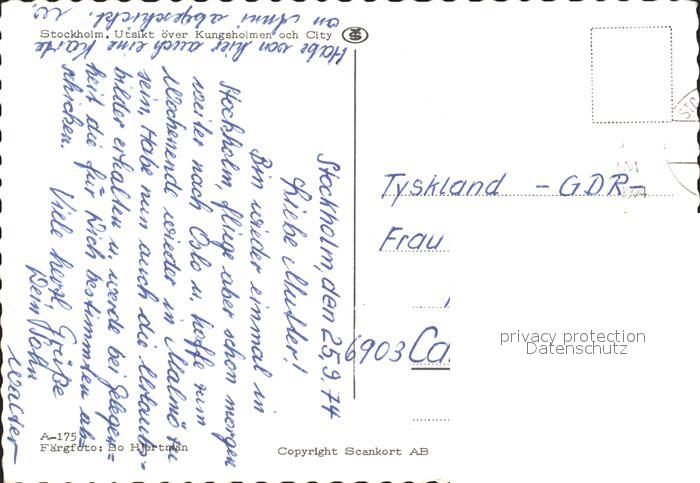 Stockholm. Utsikt över Kungsholmen och City
Stockholm, den 25.9.74
Liebe Mutter!
Bin wieder einmal in
Stockholm, fliege aber schon morgen
weiter nach Oslo u. hoffe zum
Wochenende wieder in Malmö zu
sein. Habe nun auch die Urlaubs-
bilder erhalten u. werde bei Gelegen=
heit die für Dich bestimmten ab=
schicken.
Viele herzl. Grüße
Dein Sohn
Walter
Habe von hier auch eine Karte
an Anni abgeschickt.
Tyskland - GDR -
Frau
6903 Ca
privacy protection
Datenschutz
A-175
Färgfoto: Bo Hjertman
Copyright Scankort AB
STO